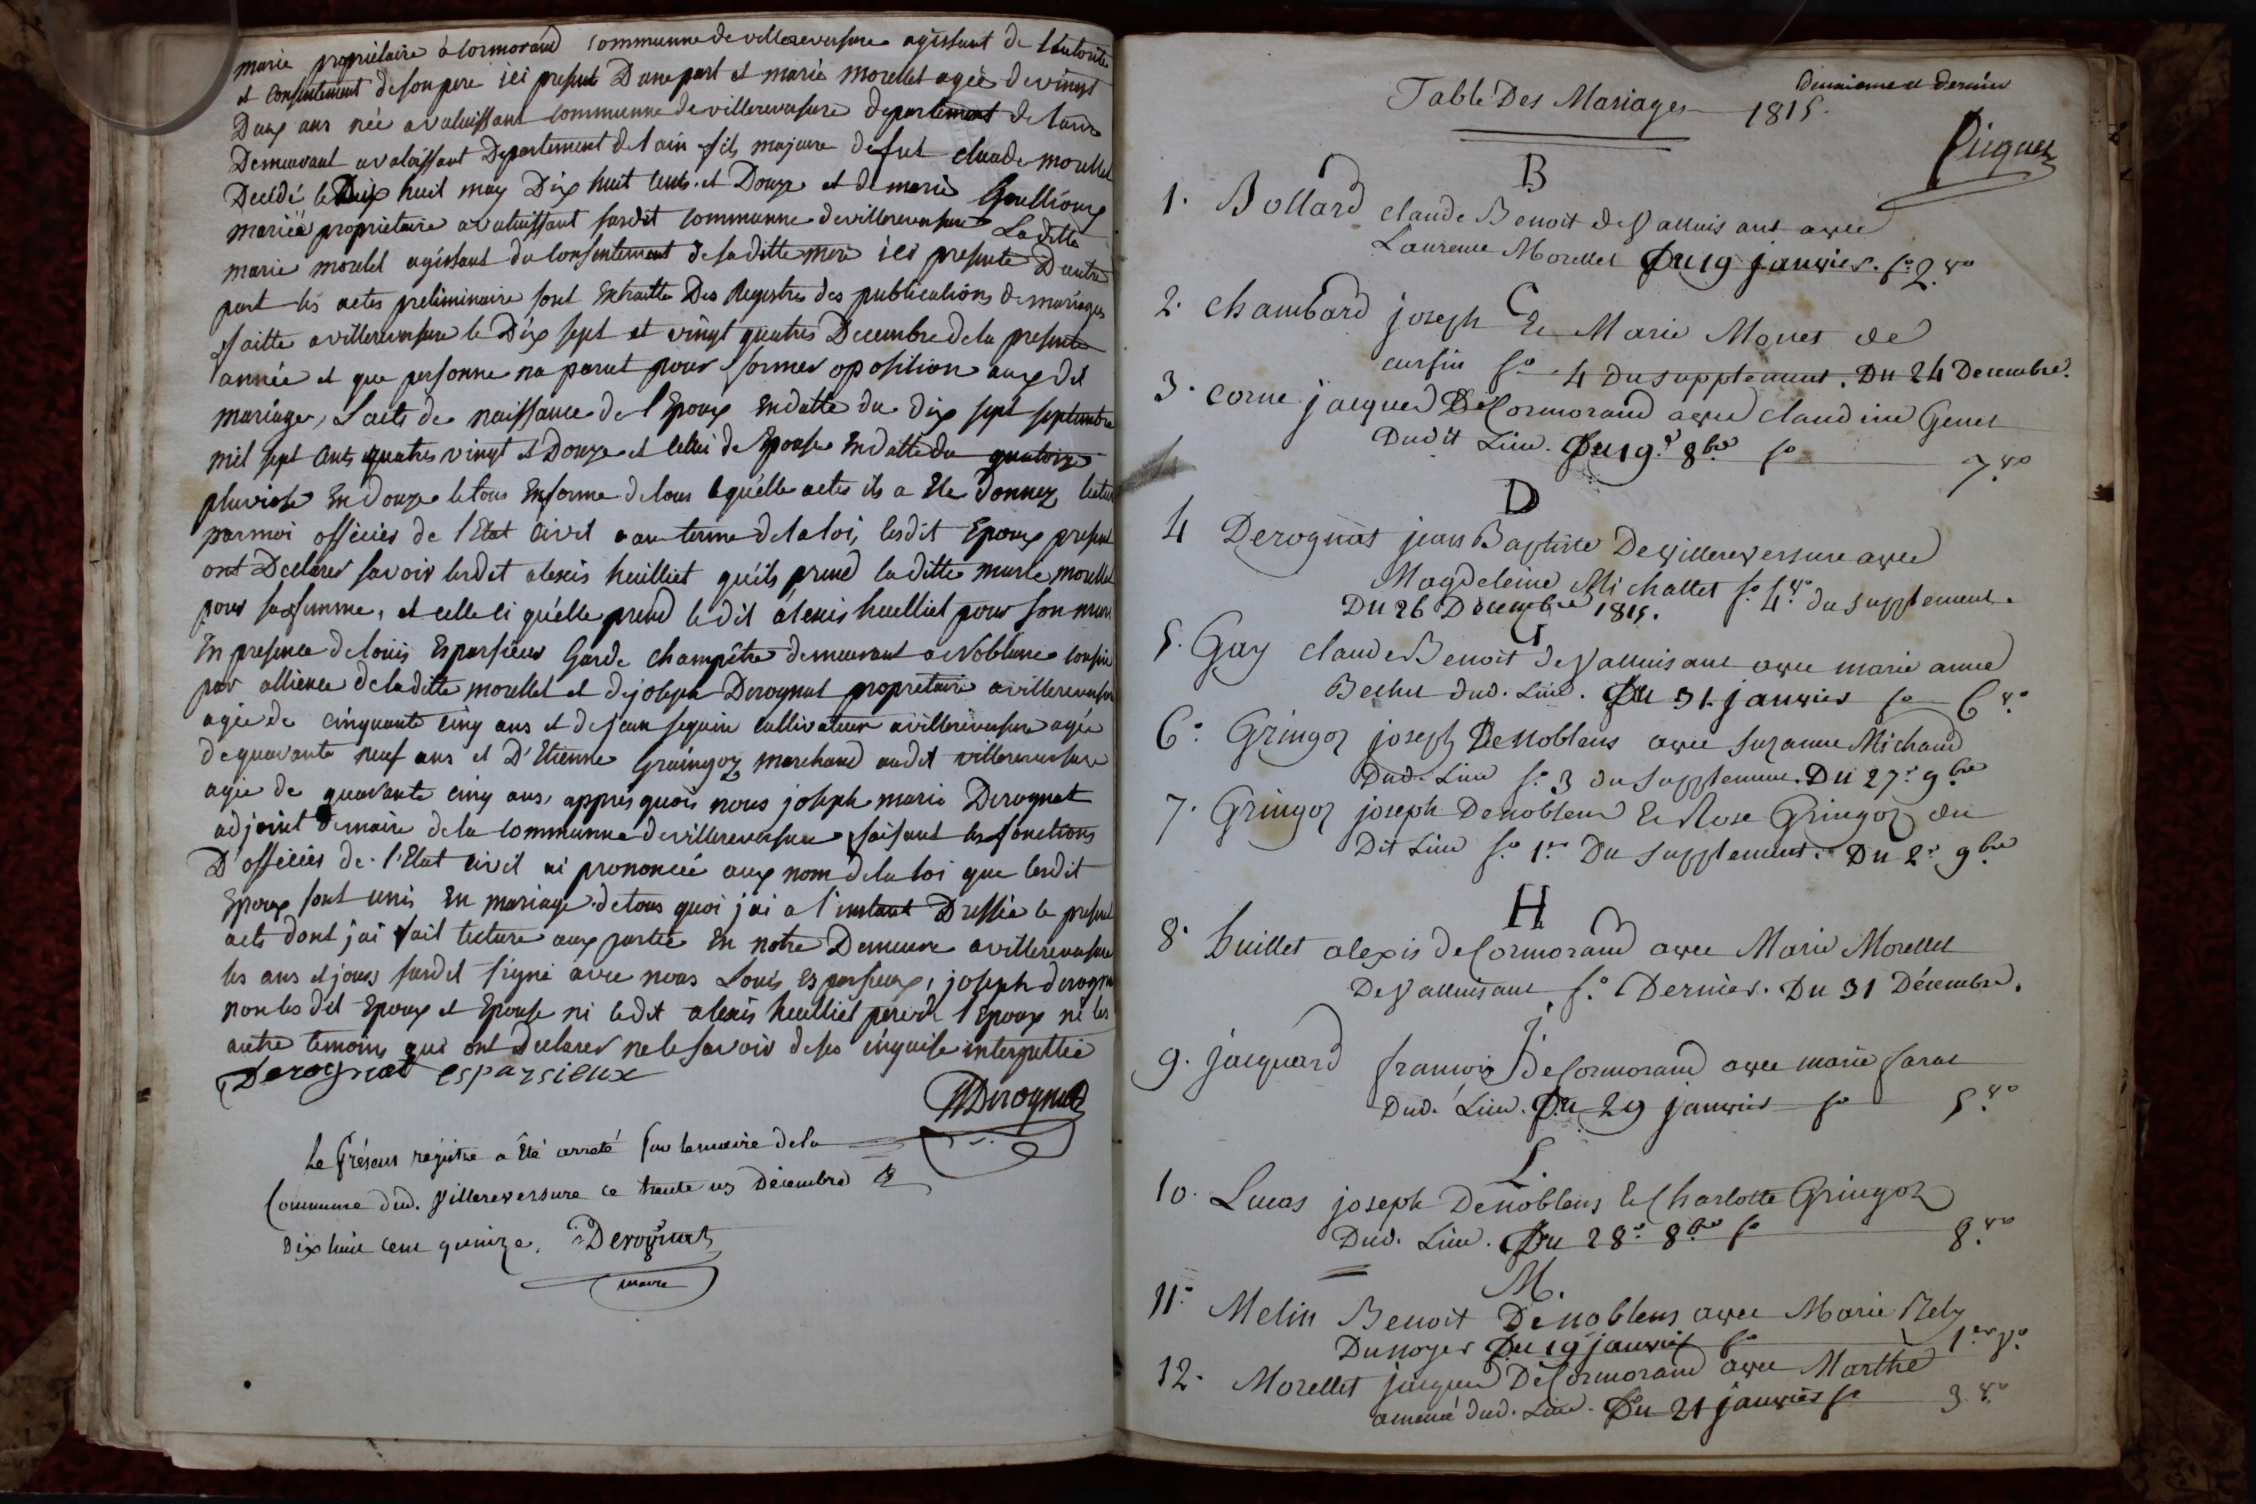 marie propriétaire à Cormorand commune de villereversure agissant de l'autorité
et consentement de son pere ici present D'une part et marie morellet agée de vingt
Deux ans née a valuissant commune de villereversure departement de l'ain
Demeurant a valuissant Departement de l'ain fils majeure de fut claude morellet
Décédé le Dix huit may Dix huit cents et Douze et de marie
mariée propriétaire a valuissant susdit commune de villereversure La ditte
marie morelet agissant du consentement de sa ditte mere ici presente D'autre
part les actes preliminaire sont Extraitte Des Registres des publications de mariages
faitte a villereversure le Dix sept et vingt quatres Decembre de la presente
année et que personne na parut pour former oposition aux dit
mariage, l'acte de naissance de l'Epoux En datte du dix sept septembre
mil sept Cents quatres vingt et Douze et celui de l'Epouse En datte du quatorze
pluviose En douze le tous En forme de tous lequelle actes ils a Ete donnez lecture
par moi officiés de l'Etat civil au terme de la loi, lesdit Epoux present
ont Declarer savoir ledit alexis huilliet qu'ils prend la ditte marie morellet
pour sa femme, et celle ci qu'elle prend le dit alexis huelliet pour son mari
En presence de louis Esparsieux Garde champêtre demeurant a Noblens cousin
par allience de la ditte morellet et de joseph Derognat propretaire a villereversure
agée de cinquante cinq ans et de jean seguin cultivateur a villereversure agée
de quarante neuf ans et D'Etienne Graingoz marchand audit villereversure
agée de quarante cinq ans, apprès quoi nous joseph marie Derognat
adjoint de maire de la commune de villereversure faisant les fonctions
D'officiés de l'Etat civil ai prononcée aux nom de la loi que lesdit
Epoux sont unis En mariage de tous quoi j'ai a l'instant Dressée le present
acte dont j'ai fait lecture aux partie En notre Demeure a villereversure
les ans et jours susdit signé avec nous Louis Esparsieux, joseph derognat
non les dit Epoux et Epouse ni ledit alexis huelliet pere de l'Epoux ni les
autre temoins qui ont Declarer ne le savoir de ses enquise interpellée
Derognat esparsieux
Derognat
Le présent régistre a êté arreté par le maire de la
Commune dud. Villereversure ce trente un Décembre
Dix huit cent quinze. Derognat
maire
Deuxieme et dernier
Table Des Mariages 1815.
Picquet
B
1. Bollard claude Benoit de Valluis ant avec
Laurence Morellet Du 19 janvier. fo. 2. vo
C
2. chambard joseph Et Marie Monet de
cursin fo 4 du supplement. Du 24 Decembre.
3. corne jacques De Cormorand avec claudine Genet
Dudit Lieu. Du 19. 8bre fo 7. vo
D
4 Derognat jean Baptiste De Villereversure avec
Magdeleine Michallet fo. 4. vo du supplement.
Du 26 Décembre 1815.
G
5. Gay claude Benoit de Valluisant avec marie anne
Bechet dud. Lieu. Du 31. janvier fo 6 vo.
6. Gringoz joseph De Noblens avec suzanne Michaud
Dud. Lieu fo. 3 du supplement. Du 27. 9bre
7. Gringoz joseph De noblens Et Rose Gringoz du
Dit Lieu fo 1er Du supplement. Du 2. 9bre
H
8. huillet alexis de Cormorand avec Marie Morellet
De Valluisant, fo. Dernier. Du 31 Décembre.
J.
9. jacquard francois de Cormorand avec marie farat
Dud. Lieu. Du 29 janvier fo 5. vo
L.
10. Lucas joseph De noblens Et Charlotte Gringoz
Dud. Lieu. Du 28. 8bre fo 8. vo
M.
11. Melin Benoit De noblens avec Marie Rely
Dunoyer Du 19 janvier fo 1er vo.
12. Morellet jacques De Cormorand avec Marthe
dud. Lieu. Du 21 janvier fo 3 vo.